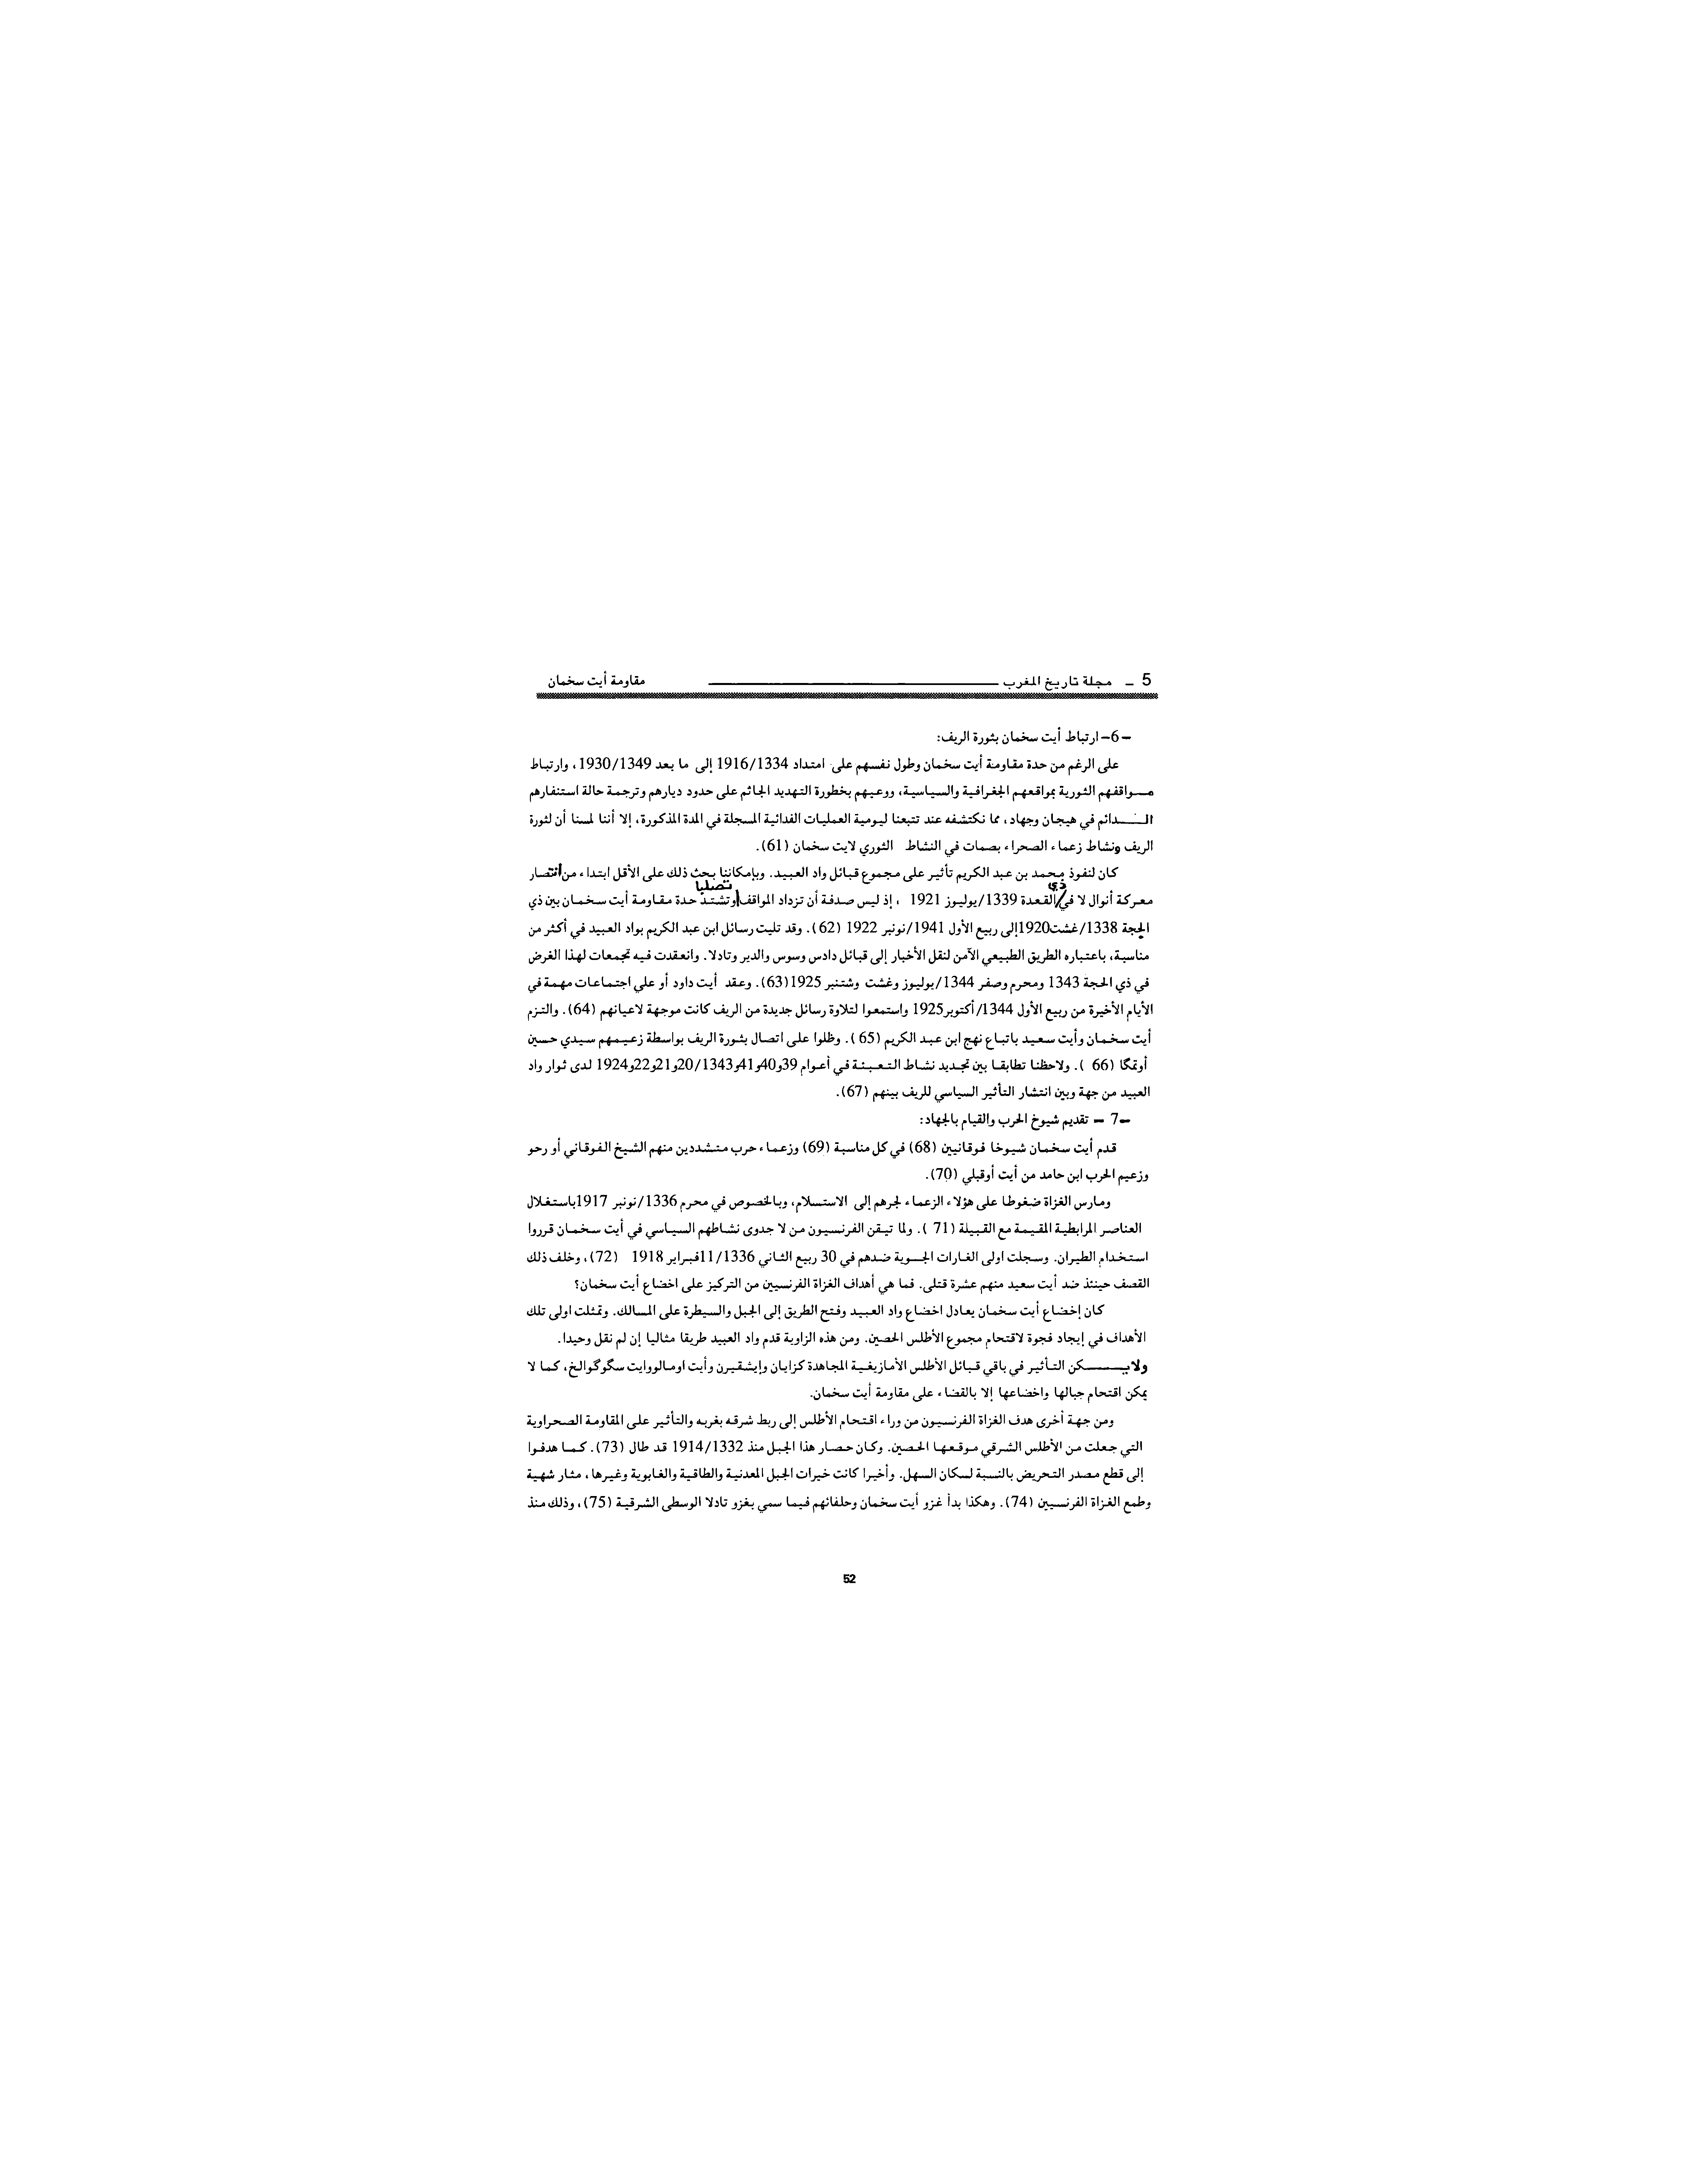 5 ـ مجلة تاريخ المغرب مقاومة أيت سخمان
–6– ارتباط أيت سخمان بثورة الريف:
على الرغم من حدة مقاومة أيت سخمان وطول نفسهم على امتداد 1916/1334 إلى ما بعد 1930/1349، وارتباط
مـــواقفهم الثورية بمواقعهم الجغرافية والسياسية، ووعيهم بخطورة التهديد الجاثم على حدود ديارهم وترجمة حالة استنفارهم
الـــــدائم في هيجان وجهاد، مما نكتشفه عند تتبعنا ليومية العمليات الفدائية المسجلة في المدة المذكورة، إلا أننا لمسنا أن لثورة
الريف ونشاط زعماء الصحراء بصمات في النشاط الثوري لايت سخمان (61).
كان لنفوذ محمد بن عبد الكريم تأثير على مجموع قبائل واد العبيد. وبإمكاننا بحث ذلك على الأقل ابتداء من أنتصار
معركة أنوال لا في ذي القعدة 1339/يوليوز 1921 ، إذ ليس صدفة أن تزداد المواقف تصلبا وتشتد حدة مقاومة أيت سخمان بين ذي
الحجة 1338/غشت1920إلى ربيع الأول 1941/نونبر 1922 (62). وقد تليت رسائل ابن عبد الكريم بواد العبيد في أكثر من
مناسبة، باعتباره الطريق الطبيعي الآمن لنقل الأخبار إلى قبائل دادس وسوس والدير وتادلا. وانعقدت فيه تجمعات لهذا الغرض
في ذي الحجة 1343 ومحرم وصفر 1344/يوليوز وغشت وشتنبر 1925(63). وعقد أيت داود أو علي اجتماعات مهمة في
الأيام الأخيرة من ربيع الأول 1344/أكتوبر1925 واستمعوا لتلاوة رسائل جديدة من الريف كانت موجهة لاعيانهم (64). والتزم
أيت سخمان وأيت سعيد باتباع نهج ابن عبد الكريم (65 ). وظلوا على اتصال بثورة الريف بواسطة زعيمهم سيدي حسين
أوتمگا (66 ). ولاحظنا تطابقا بين تجديد نشاط التعبئة في أعوام 39و40و41و20/1343و21و22و1924 لدى ثوار واد
العبيد من جهة وبين انتشار التأثير السياسي للريف بينهم (67).
–7 – تقديم شيوخ الحرب والقيام بالجهاد:
قدم أيت سخمان شيوخا فوقانيين (68) في كل مناسبة (69) وزعماء حرب متشددين منهم الشيخ الفوقاني أو رحو
وزعيم الحرب ابن حامد من أيت أوقبلي (70).
ومارس الغزاة ضغوطا على هؤلاء الزعماء لجرهم إلى الاستسلام، وبالخصوص في محرم 1336/نونبر 1917باستغلال
العناصر المرابطية المقيمة مع القبيلة (71 ). ولما تيقن الفرنسيون من لا جدوى نشاطهم السياسي في أيت سخمان قرروا
استخدام الطيران. وسجلت اولى الغارات الجـوية ضدهم في 30 ربيع الثاني 11/1336فبراير 1918 (72)، وخلف ذلك
القصف حينئذ ضد أيت سعيد منهم عشرة قتلى. فما هي أهداف الغزاة الفرنسيين من التركيز على اخضاع أيت سخمان؟
كان إخضاع أيت سخمان يعادل اخضاع واد العبيد وفتح الطريق إلى الجبل والسيطرة على المسالك. وتمثلت اولى تلك
الأهداف في إيجاد فجوة لاقتحام مجموع الأطلس الحصين. ومن هذه الزاوية قدم واد العبيد طريقا مثاليا إن لم نقل وحيدا.
ولايـــــــكن التأثير في باقي قبائل الأطلس الأمازيغية المجاهدة كزايان وإيشقيرن وأيت اومالووايت سگوگوالخ، كما لا
يمكن اقتحام جبالها واخضاعها إلا بالقضاء على مقاومة أيت سخمان.
ومن جهة أخرى هدف الغزاة الفرنسيون من وراء اقتحام الأطلس إلى ربط شرقه بغربه والتأثير على المقاومة الصحراوية
التي جعلت من الأطلس الشرقي موقعها الحصين. وكان حصار هذا الجبل منذ 1914/1332 قد طال (73). كما هدفوا
إلى قطع مصدر التحريض بالنسبة لسكان السهل. وأخيرا كانت خيرات الجبل المعدنية والطاقية والغابوية وغيرها، مثار شهية
وطمع الغزاة الفرنسيين (74). وهكذا بدأ غزو أيت سخمان وحلفائهم فيما سمي بغزو تادلا الوسطى الشرقية (75)، وذلك منذ
52